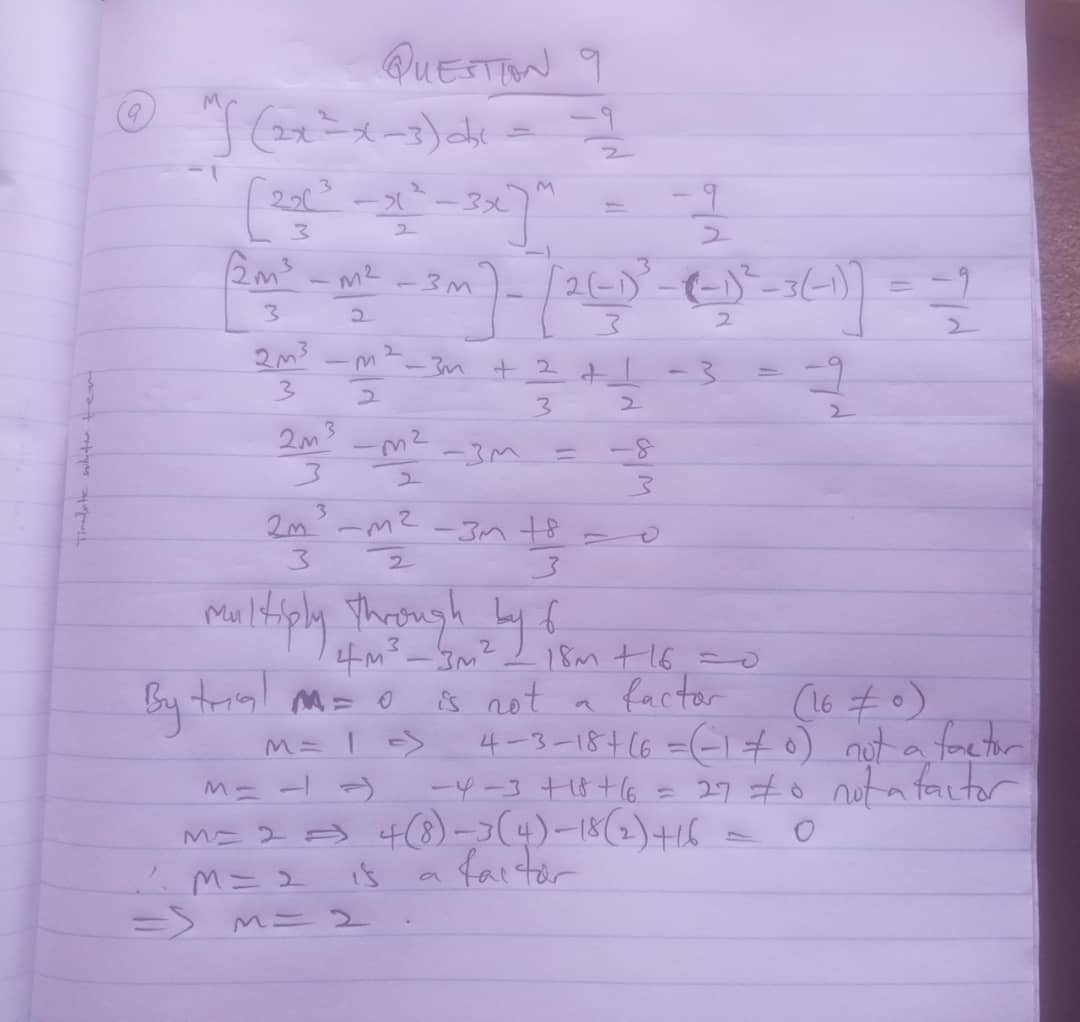 QUESTION 9
(a) ᴹ∫₋₁ (2x² - x - 3) dx = -9/2
[2x³/3 - x²/2 - 3x]ᴹ₋₁ = -9/2
[2m³/3 - m²/2 - 3m] - [2(-1)³/3 - (-1)²/2 - 3(-1)] = -9/2
2m³/3 - m²/2 - 3m + 2/3 + 1/2 - 3 = -9/2
2m³/3 - m²/2 - 3m = -8/3
2m³/3 - m²/2 - 3m + 8/3 = 0
Multiply through by 6
4m³ - 3m² - 18m + 16 = 0
By trial m = 0 is not a factor (16 ≠ 0)
m = 1 => 4 - 3 - 18 + 16 = (-1 ≠ 0) not a factor
m = -1 => -4 - 3 + 18 + 16 = 27 ≠ 0 not a factor
m = 2 => 4(8) - 3(4) - 18(2) + 16 = 0
∴ m = 2 is a factor
=> m = 2.